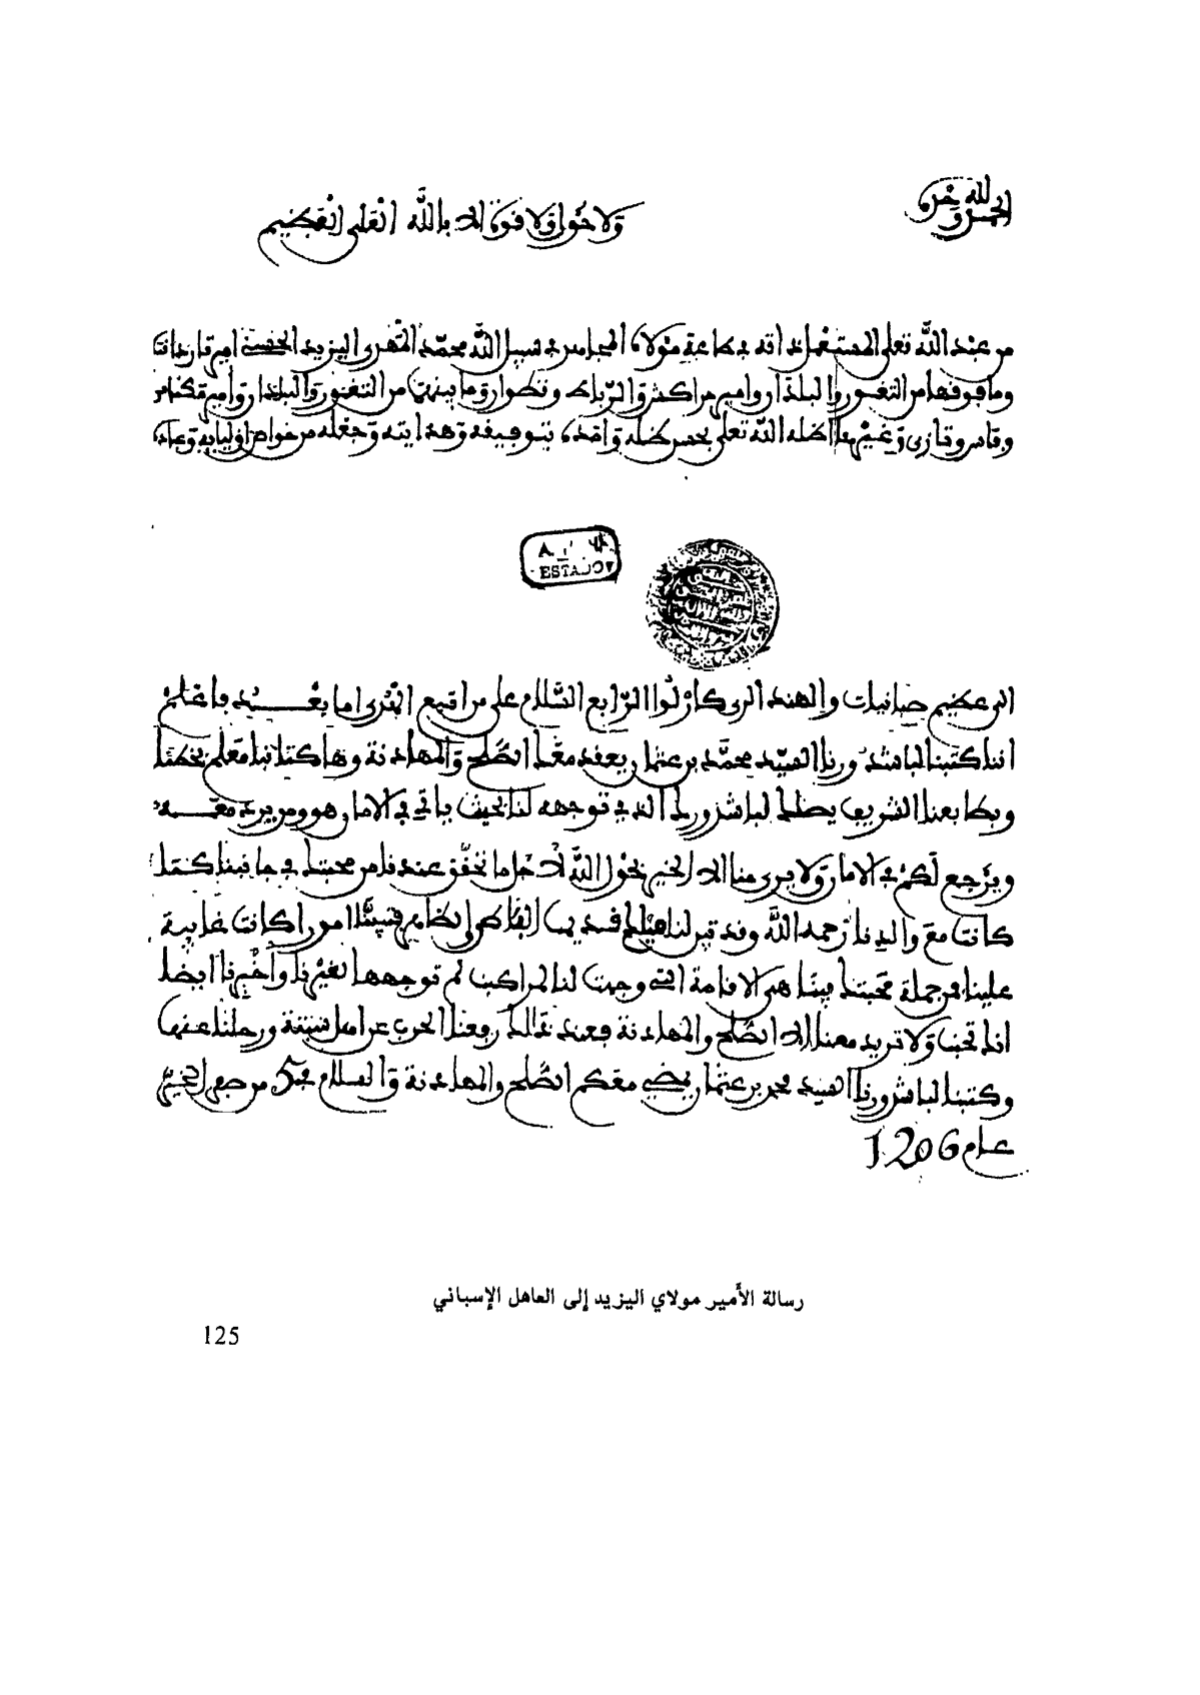 الحمد لله وحده
ولا حول ولا قوة الا بالله العلي العظيم
من عبد الله تعلى المستغرق أوقاته في طاعة مولاه المجاهد في سبيل الله محمد المهدي اليزيد الحسني أمير تارودانت
وما فوقها من الثغور والبلدان وامير مراكش والرباط وتطوان وما بينهن من الثغور والبلدان وأمير مكناس
وفاس وتازى وغيرها أظله الله تعلى بحسن ظله وأمده بتوفيقه وهدايته وجعله من خواص أوليائه
ESTADO
الى عظيم صبانيا والهند الري كارلوا الرابع السلام على من اتبع الهدى اما بعد فاعلم
اننا كتبنا لباشدورنا السيد محمد بن عثمان يعقد معك الصلح والمهادنة وها كتابنا معلم بخطنا
وبطابعنا الشريف يصلك لباشدورك الذي توجهه لنا بحيث ياتي في الامان هو ومن يرد معه
ويرجع لكم في الامان ولا يرى منا الا الخير بحول الله لاجل ما تحقق عندنا من محبتك في جانبنا كما
كانت مع والدنا رحمه الله وقد تبين لنا امورا كانت غايبة
علينا من جملة محبتك فينا هي الاقامة التي وجهت لنا المراكب لم توجهها لغيرنا واخبرنا ايضا
انك تحبنا ولا تريد معنا الا الصلح والمهادنة فعند ذلك رفعنا الحرب عن اهل سبتة ورحلنا عنها
وكتبنا لباشدورنا السيد محمد بن عثمان يمضي معكم الصلح والمهادنة والسلام في 5 من صفر الخير
عام 1206
رسالة الأمير مولاي اليزيد إلى العاهل الإسباني
125